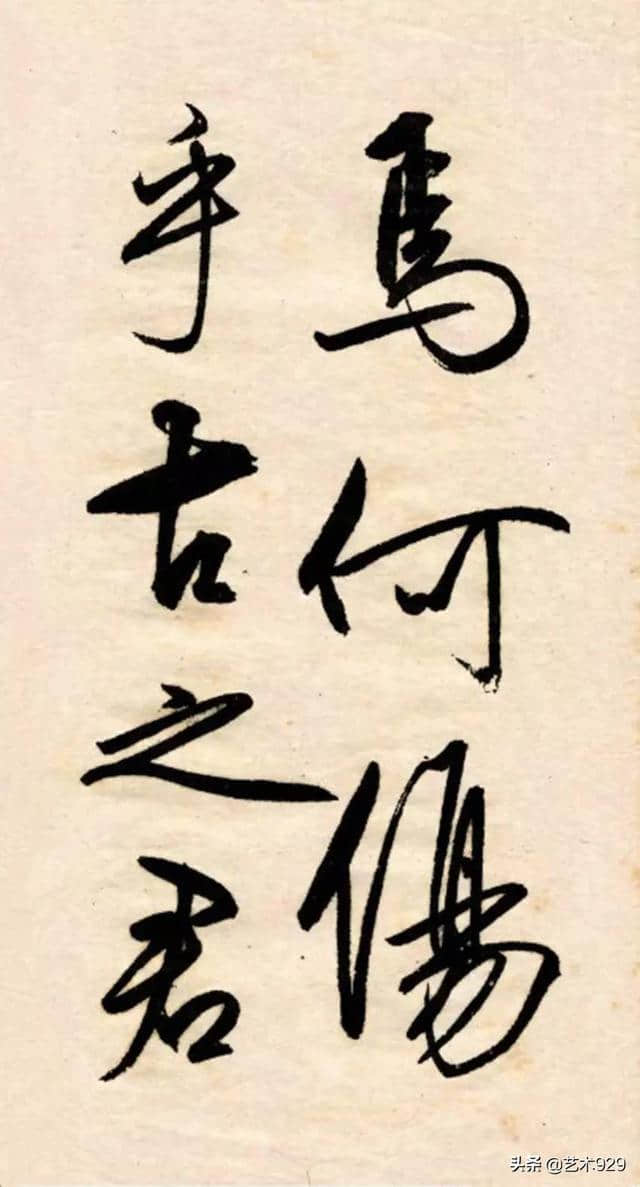 焉何傷
乎古之君
头条 @艺术929